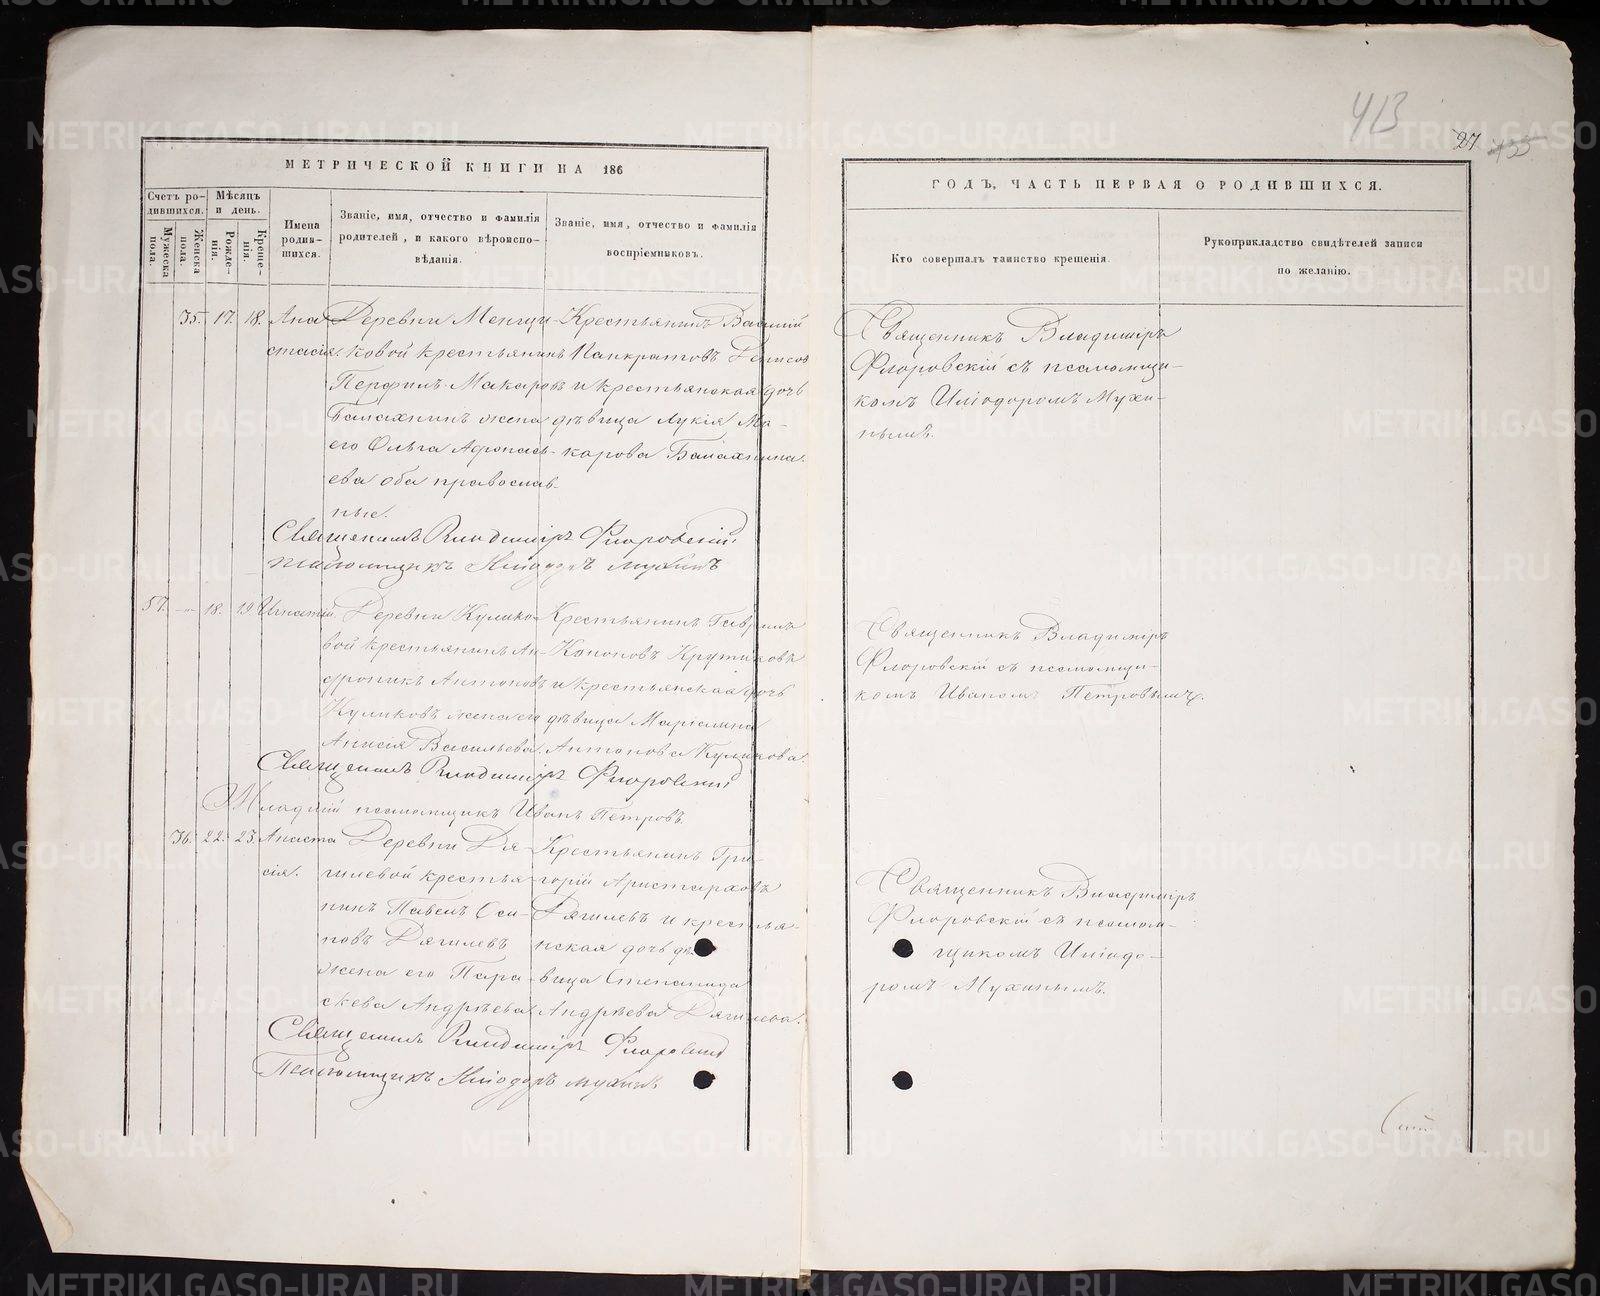 413
27
435
МЕТРИЧЕСКОЙ КНИГИ НА 186
ГОДЪ, ЧАСТЬ ПЕРВАЯ О РОДИВШИХСЯ.
Счетъ ро-
дившихся.
Мужеска
пола.
Женска
пола.
Мѣсяцъ
и день.
Рожде-
нія.
Креще-
нія.
Имена
родив-
шихся.
Званіе, имя, отчество и фамилія
родителей, и какого вѣроиспо-
вѣданія.
Званіе, имя, отчество и фамилія
воспріемниковъ.
Кто совершалъ таинство крещенія.
Рукоприкладство свидѣтелей записи
по желанію.
35. 17. 18.
Ана
стасія.
Деревни Менщи-
ковой крестьянинъ
Перфилъ Макаровъ
Балахнинъ жена
его Ольга Афонась-
ева оба православ-
ные.
Крестьянинъ Василій
Панкратовъ Денисов
и крестьянская дочь
дѣвица Лукія Ма-
карова Балахнина.
Священникъ Владиміръ
Флоровскій съ псаломщи-
комъ Иліодоромъ Мухи-
нымъ.
Священникъ Владиміръ Флоровскій
Псаломщикъ Иліодоръ Мухинъ
57. — 18. 19.
Игнатій.
Деревни Кулико-
вой крестьянинъ Ан-
дроникъ Антоновъ
Куликовъ жена его
Анисія Васильева.
Крестьянинъ Гаврилъ
Кононовъ Крутиковъ
и крестьянская дочь
дѣвица Маріамна
Антонова Куликова.
Священникъ Владиміръ
Флоровскій съ псаломщи-
комъ Иваномъ Петровымъ.
Священникъ Владиміръ Флоровскій
Младшій псаломщикъ Иванъ Петровъ.
36. 22. 23.
Анаста
сія.
Деревни Дя-
гилевой крестья-
нинъ Павелъ Оси-
повъ Дягилевъ
жена его Пара-
скева Андрѣева.
Крестьянинъ Гри-
горій Аристарховъ
Дягилевъ и крестья-
нская дочь дѣ
вица Степанида
Андрѣева Дягилева.
Священникъ Владиміръ
Флоровскій съ псалом-
щикомъ Иліодо-
ромъ Мухинымъ.
Священникъ Владиміръ Флоровскій
Псаломщикъ Иліодоръ Мухинъ
METRIKI.GASO-URAL.RU